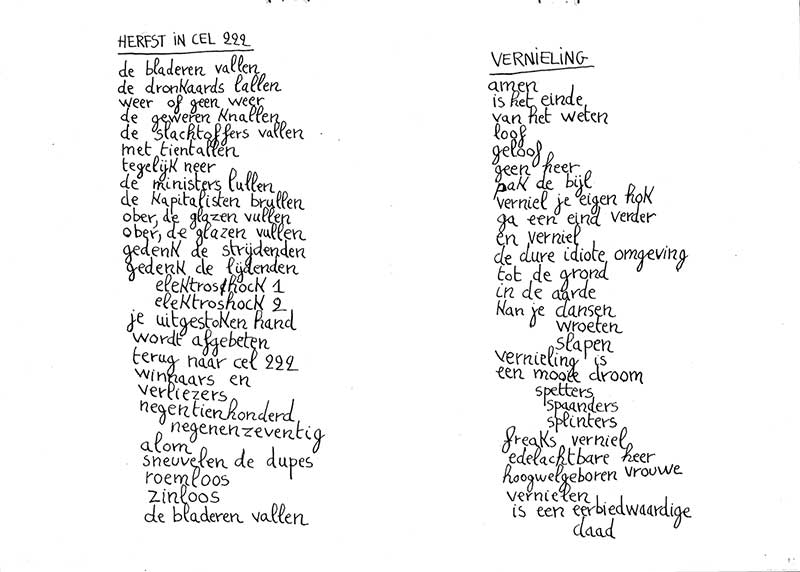 HERFST IN CEL 222
de bladeren vallen
de dronkaards lallen
weer of geen weer
de geweren knallen
de slachtoffers vallen
met tientallen
tegelijk neer
de ministers lullen
de kapitalisten brullen
ober, de glazen vullen
ober, de glazen vullen
gedenk de strijdenden
gedenk de lijdenden
elektroshock 1
elektroshock 2
je uitgestoken hand
wordt afgebeten
terug naar cel 222
winnaars en
verliezers
negentienhonderd
negenenzeventig
alom
sneuvelen de dupes
roemloos
zinloos
de bladeren vallen
VERNIELING
amen
is het einde
van het weten
loof
geloof
geen heer
pak de bijl
verniel je eigen hok
ga een eind verder
en verniel
de dure idiote omgeving
tot de grond
in de aarde
kan je dansen
wroeten
slapen
vernieling is
een mooie droom
spetters
spaanders
splinters
freaks verniel
edelachtbare heer
hoogwelgeboren vrouwe
vernielen
is een eerbiedwaardige
daad